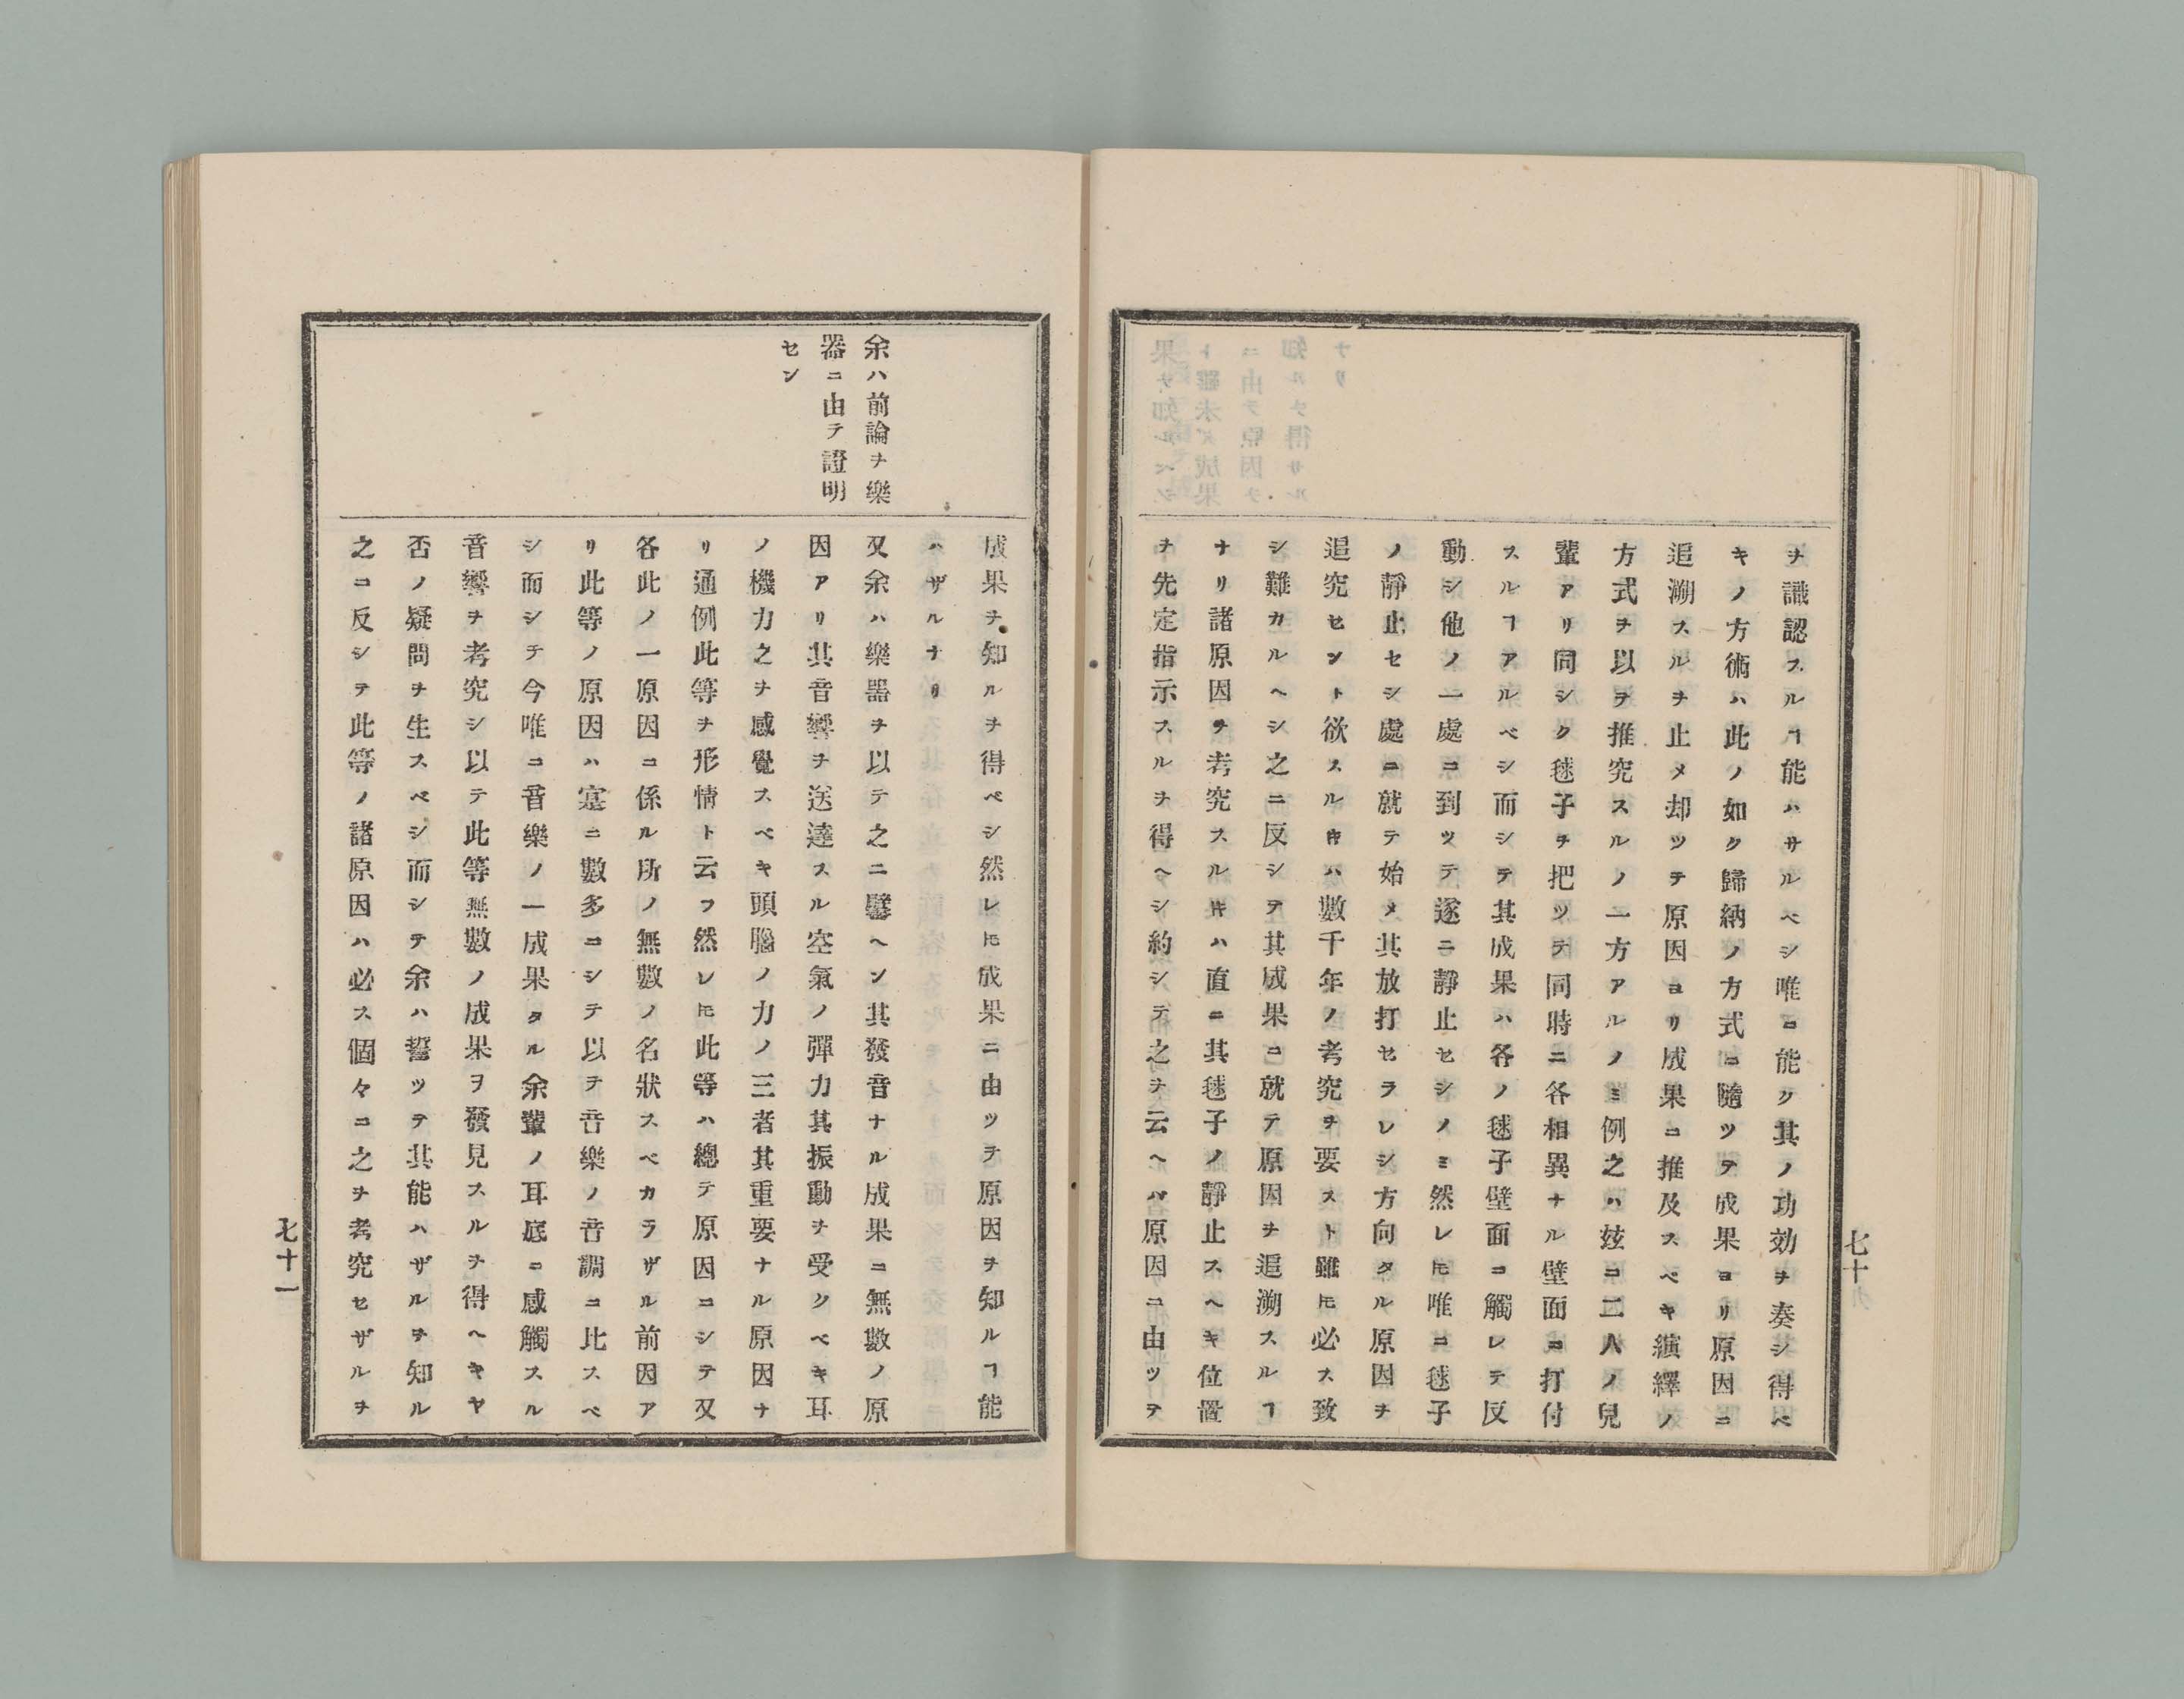 ヲ識認スルヿ能ハサルベシ唯ニ能ク其ノ功効ヲ奏シ得ベ
キノ方術ハ此ノ如ク歸納ノ方式ニ隨ツテ成果ヨリ原因ニ
追溯スルヲ止メ却ツテ原因ヨリ成果ニ推及スベキ縯繹ノ
方式ヲ以テ推究スルノ一方アルノミ例之ハ玆ニ二人ノ兒
輩アリ同シク毬子ヲ把ツテ同時ニ各相異ナル壁面ニ打付
スルヿアルベシ而シテ其成果ハ各ノ毬子壁面ニ觸レテ反
動シ他ノ一處ニ到ツテ遂ニ靜止セシノミ然レ𪜈唯ニ毬子
ノ靜止セシ處ニ就テ始メ其放打セラレシ方向タル原因ヲ
追究セント欲スルキハ數千年ノ考究ヲ要スト雖𪜈必ス致
シ難カルヘシ之ニ反シテ其成果ニ就テ原因ヲ追溯スルヿ
ナリ諸原因ヲ考究スルキハ直ニ其毬子ノ靜止スヘキ位置
ヲ先定指示スルヲ得ヘシ約シテ之ヲ云ヘハ原因ニ由ツテ
七十
成果ヲ知ルヲ得ベシ然レ𪜈成果ニ由ツテ原因ヲ知ルヿ能
ハザルナリ
余ハ前論ヲ樂
器ニ由テ證明
セン
又余ハ樂器ヲ以テ之ニ譬ヘン其發音ナル成果ニ無數ノ原
因アリ其音響ヲ送達スル空氣ノ彈力其振動ヲ受クベキ耳
ノ機力之ヲ感覺スベキ頭腦ノ力ノ三者其重要ナル原因ナ
リ通例此等ヲ形情ト云フ然レ𪜈此等ハ總テ原因ニシテ又
各此ノ一原因ニ係ル所ノ無數ノ名狀スベカラザル前因ア
リ此等ノ原因ハ寔ニ數多ニシテ以テ音樂ノ音調ニ比スベ
シ而シテ今唯ニ音樂ノ一成果タル余輩ノ耳底ニ感觸スル
音響ヲ考究シ以テ此等無數ノ成果ヲ發見スルヲ得ヘキヤ
否ノ疑問ヲ生スベシ而シテ余ハ誓ツテ其能ハザルヲ知ル
之ニ反シテ此等ノ諸原因ハ必ス個々ニ之ヲ考究セザルヲ
七十一